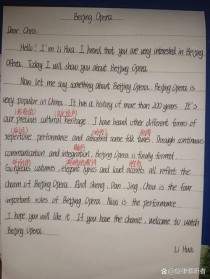 Beijing Opera
Dear Chris,
Hello! I'm Li Hua. I heard that you are very interested in Beijing
Opera. Today I will show you about Beijing Opera.
Now let me say something about Beijing Opera. Beijing Opera is
very popular in China. It has a history of more than 200 years. It's
our precious cultural heritage. It heard other different forms of
repertoire, performance and absorbed some folk tunes. Through continuous
communication and integration, Beijing Opera is finally formed.
Gorgeous costumes, elegant lyrics and loud accents all reflect the
charm of Beijing Opera. And Sheng, Dan, Jing, Chou is the four
important roles of Beijing Opera. Nian is the performance.
I hope you will like it. If you have the chance, welcome to watch
Beijing Opera.
Li Hua